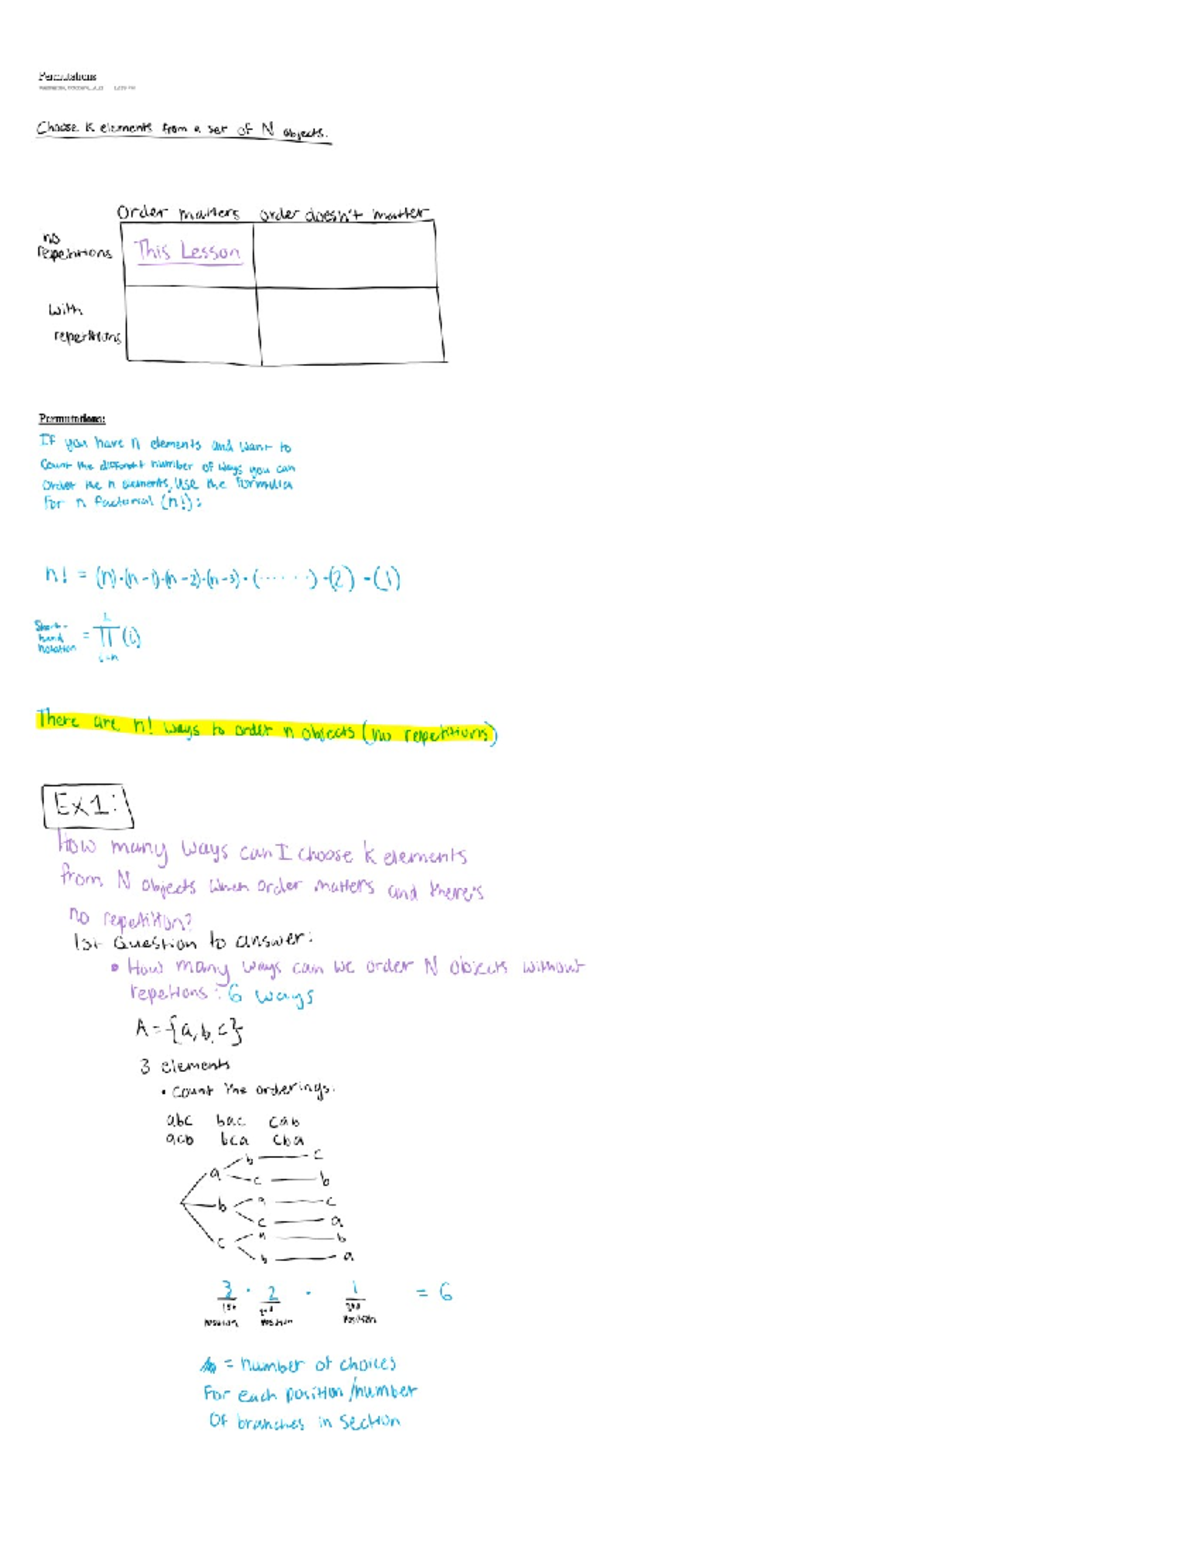 Permutations
12:59 PM
Choose k elements from a set of N objects.
Order matters order doesn't matter
no
repetitions
This Lesson
with
repetitions
Permutations:
If you have n elements and want to
count the different number of ways you can
order the n elements, use the formula
for n factorial (n!):
n! = (n)·(n-1)·(n-2)·(n-3)·(······)·(2)·(1)
Short-
hand
notation
= ∏ (i)
There are n! ways to order n objects (no repetitions)
Ex1:
How many ways can I choose k elements
from N objects when order matters and there's
no repetition?
1st Question to answer:
• How many ways can we order N objects without
repetions: 6 ways
A = {a, b, c}
3 elements
• Count the orderings.
abc bac cab
acb bca cba
b c
a
c b
a c
b
c a
a b
c
b a
3 · 2 · 1 = 6
1st 2nd
position position position
= number of choices
for each position/number
of branches in section